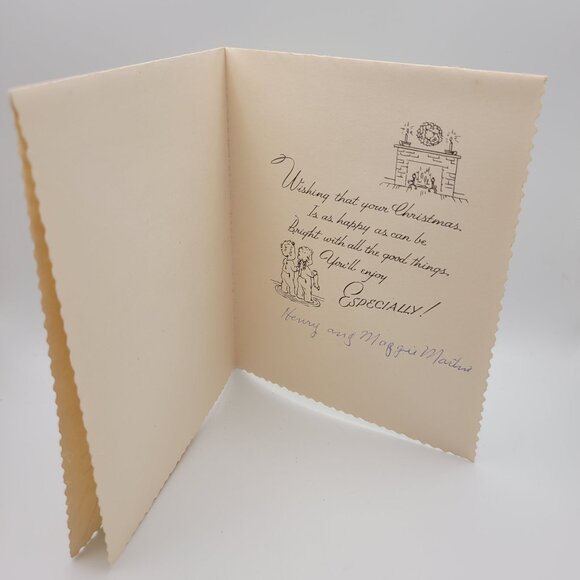 Wishing that your Christmas
Is as happy as can be
Bright with all the good things
You'll enjoy
ESPECIALLY!
Henry and Maggie Martin